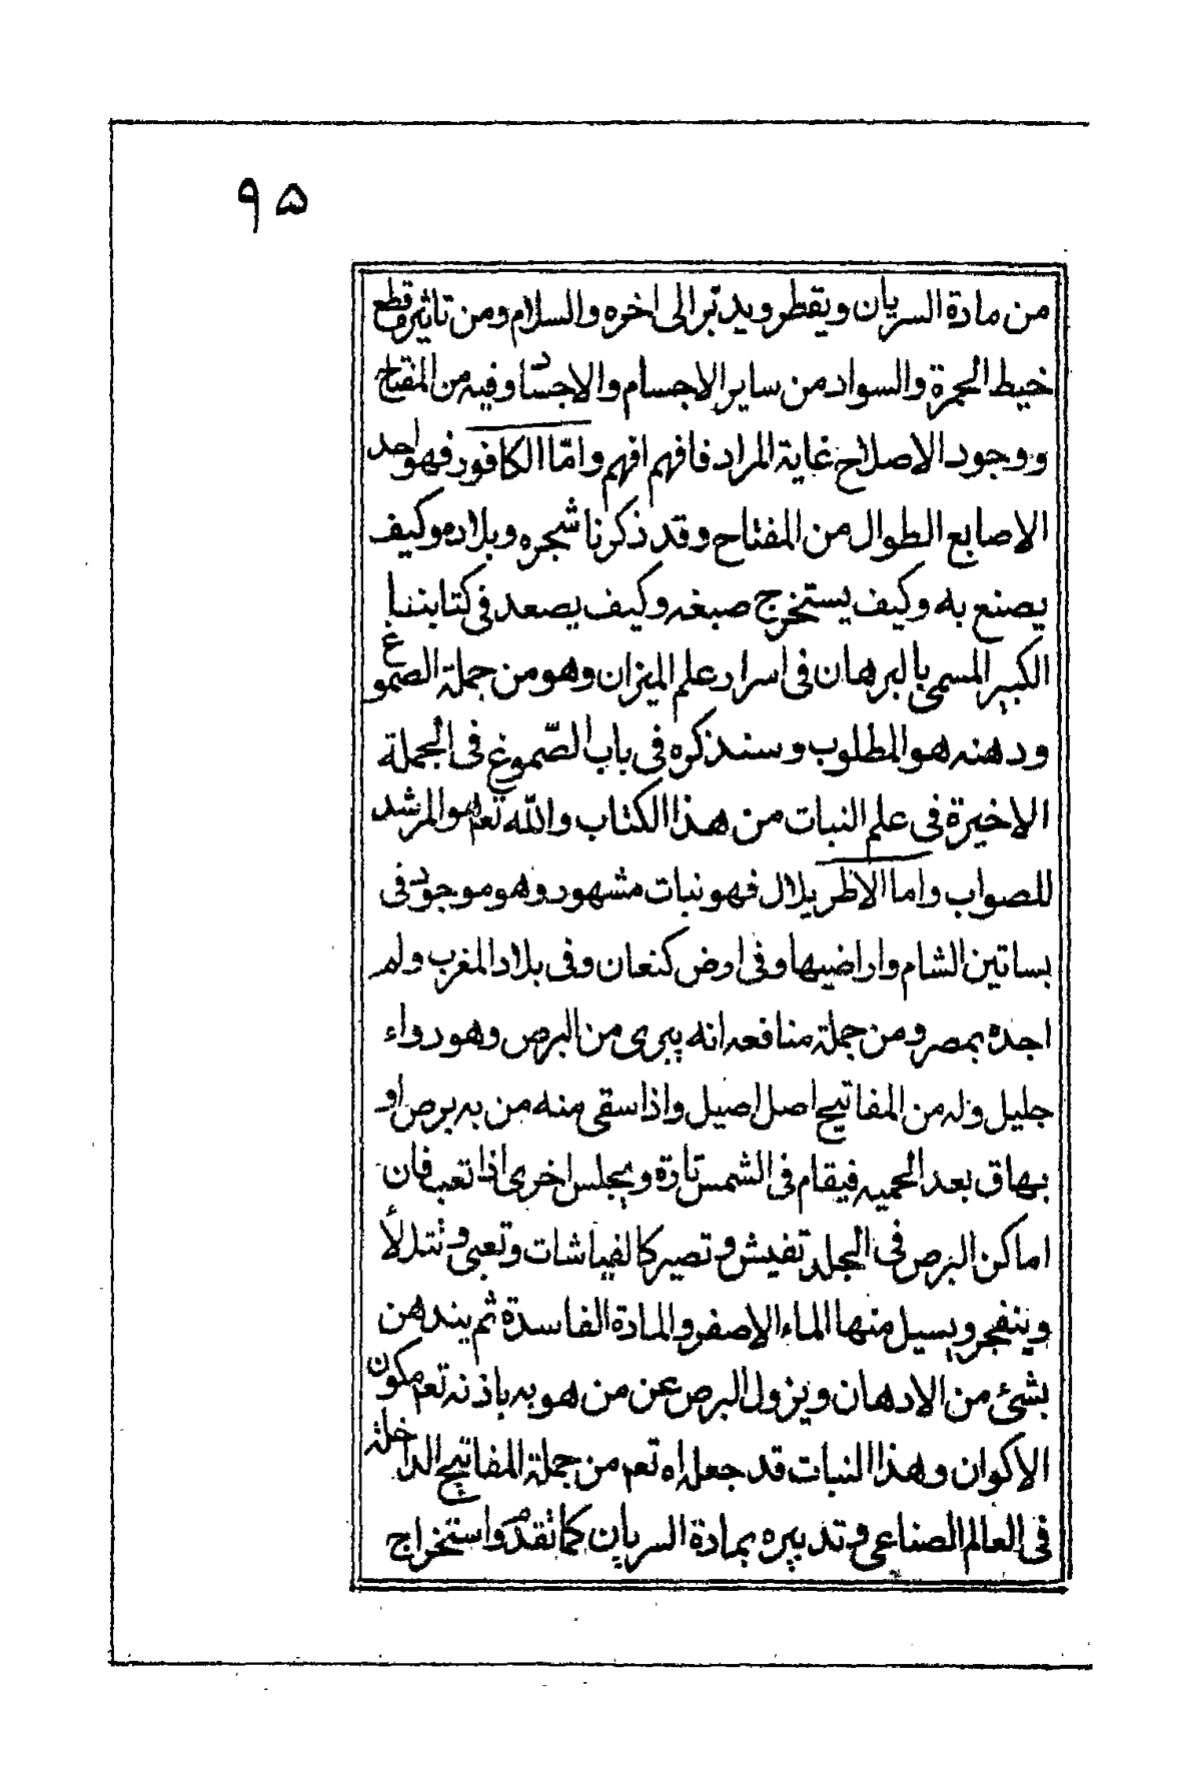 ۹۵
من مادة السريان ويقطر ويدبّر الى اخره والسلام ومن تاثيره قطع
خيط الحمرة والسواد من ساير الاجسام والاجساد وفيه من المفتاح
ووجود الاصلاح غاية المراد فافهم افهم وامّا الكافور فهو احد
الاصابع الطوال من المفتاح وقد ذكرنا شجره وبلاده وكيف
يصنع به وكيف يستخرج صبغه وكيف يصعد فى كتابننا
الكبير المسمى بالبرهان فى اسرار علم الميزان وهو من جملة الصموغ
ودهنه هو المطلوب وسنذكره فى باب الصّموغ فى الجملة
الاخيرة فى علم النبات من هذا الكتاب والله تعم هو المرشد
للصواب واما الاطريلال فهو نبات مشهور وهو موجود فى
بساتين الشام واراضيها وفى ارض كنعان وفى بلاد المغرب ولم
اجده بمصر ومن جملة منافعه انه يبرى من البرص وهو دواء
جليل وله من المفاتيح اصل اصيل واذا سقى منه من به برص او
بهاق بعد الحميه فيقام فى الشمس تارة ويجلس اخرى اذا تعب فان
اماكن البرص فى الجلد تفيش وتصير كالفياشات وتعبى وتتدلأ
وينفجر ويسيل منها الماء الاصفر والمادة الفاسدة ثم يندهن
بشئ من الادهان ويزول البرص عن من هو به باذنه تعم مكون
الاكوان وهذا النبات قد جعله اه تعم من جملة المفاتيح الداخلة
فى العالم الصناعى وتدبيره بمادة السريان كما تقدم واستخراج